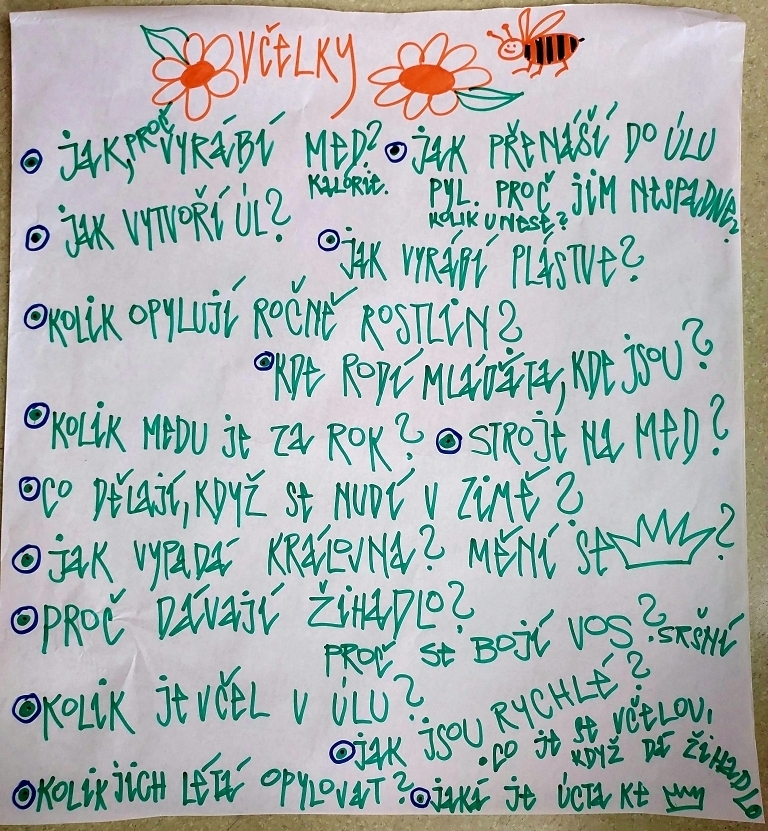 VČELKY
JAK, PROČ VYRÁBÍ MED? KALORIE.
JAK PŘENÁŠÍ DO ÚLU
PYL. PROČ JIM NESPADNE?
KOLIK UNESE?
JAK VYTVOŘÍ ÚL?
JAK VYRÁBÍ PLÁSTVE?
KOLIK OPYLUJÍ ROČNĚ ROSTLIN?
KDE RODÍ MLÁĎÁTA, KDE JSOU?
KOLIK MEDU JE ZA ROK?
STROJE NA MED?
CO DĚLAJÍ, KDYŽ SE NUDÍ V ZIMĚ?
JAK VYPADÁ KRÁLOVNA? MĚNÍ SE ?
PROČ DÁVAJÍ ŽIHADLO?
PROČ SE BOJÍ VOS? SRŠNÍ
KOLIK JE VČEL V ÚLU?
JAK JSOU RYCHLÉ?
CO JE SE VČELOU,
KDYŽ DÁ ŽIHADLO
KOLIK JICH LÉTÁ OPYLOVAT?
JAKÁ JE ÚCTA KE